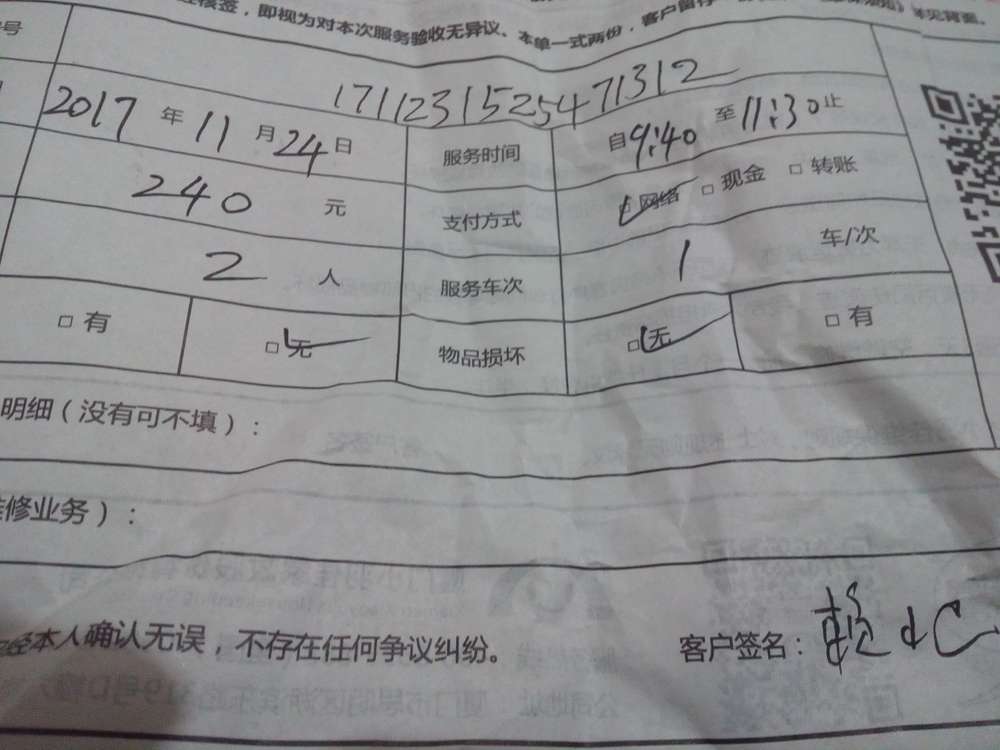 核签，即视为对本次服务验收无异议。本单一式两份，客户留存一
见背面。
号
1711231525471312
2017 年 11 月 24 日 服务时间 自 9:40 至 11:30 止
240 元 支付方式 ☑ 网络 □ 现金 □ 转账
2 人 服务车次 1 车/次
□ 有 ☑ 无 物品损坏 ☑ 无 □ 有
明细（没有可不填）：
修业务）：
经本人确认无误，不存在任何争议纠纷。 客户签名：